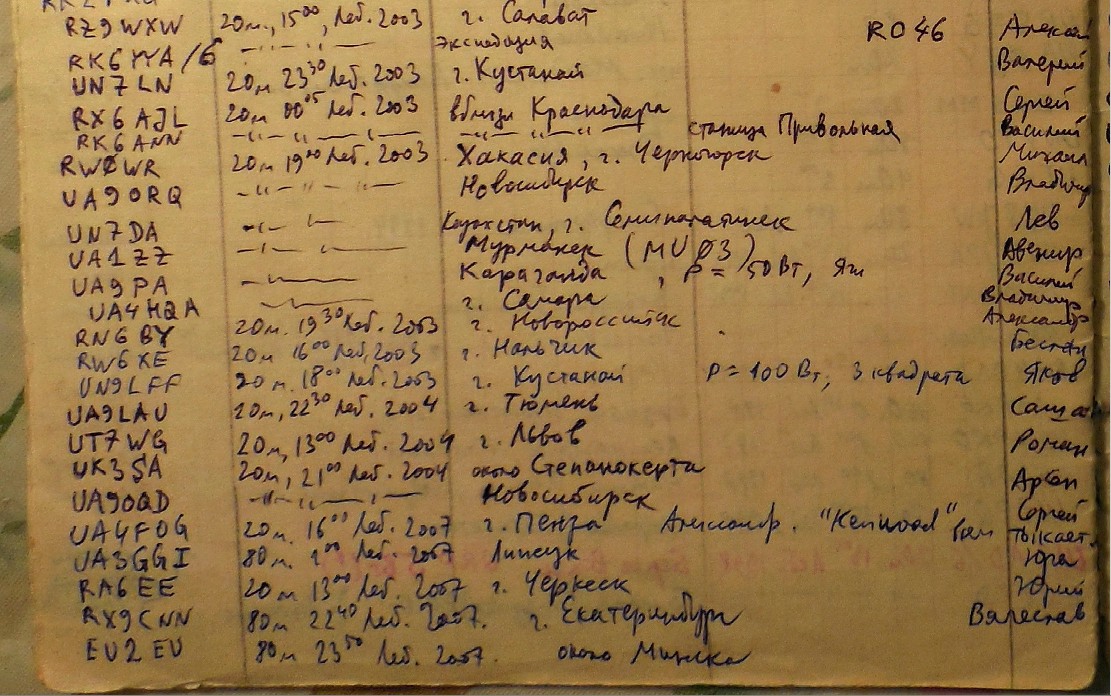 RZ9WXW 20м., 15⁰⁰, Леб. 2003 г. Салават RO46 Алексей
RK6YYA/6 –"–"– Экспедиция Валерий
UN7LN 20м 23³⁰ Леб. 2003 г. Кустанай Сергей
RX6AJL 20м 00⁰⁵ Леб. 2003 вблизи Краснодара Василий
RK6ANN –"–"–"– –"–"–"– станица Привольная
RWØWR 20м 19⁰⁰ Леб. 2003 Хакасия, г. Черногорск Михаил
UA9ORQ –"–"– Новосибирск Владимир
UN7DA –"– Казахстан, г. Семипалатинск Лев
UA1ZZ –"– Мурманск (MUØ3) Авенир
UA9PA Караганда, P = 50 Вт, Яги Василий
UA4HQA г. Самара Владимир
RN6BY 20м. 19³⁰ Леб. 2003 г. Новороссийск Александр
RW6XE 20м 16⁰⁰ Леб. 2003 г. Нальчик Беслан
UN9LFF 20м. 18⁰⁰ Леб. 2003 г. Кустанай P = 100 Вт, 3 квадрата Яков
UA9LAU 20м, 22³⁰ Леб. 2004 г. Тюмень Саша
UT7WG 20м, 13⁰⁰ Леб. 2004 г. Львов Роман
UK3SA 20м, 21⁰⁰ Леб. 2004 около Степанокерта Арсен
UA9OQD –"–"– Новосибирск Сергей
UA4FOG 20м. 16⁰⁰ Леб. 2007 г. Пенза Александр. "Kenwood" Вам тыкает.
UA3GGI 80м. Леб. 2007 Липецк Юра
RA6EE 20м 13⁰⁰ Леб. 2007 г. Черкеск Юрий
RX9CNN 80м 22⁴⁰ Леб. 2007. г. Екатеринбург Вячеслав
EU2EU 80м 23⁵⁰ Леб. 2007. около Минска